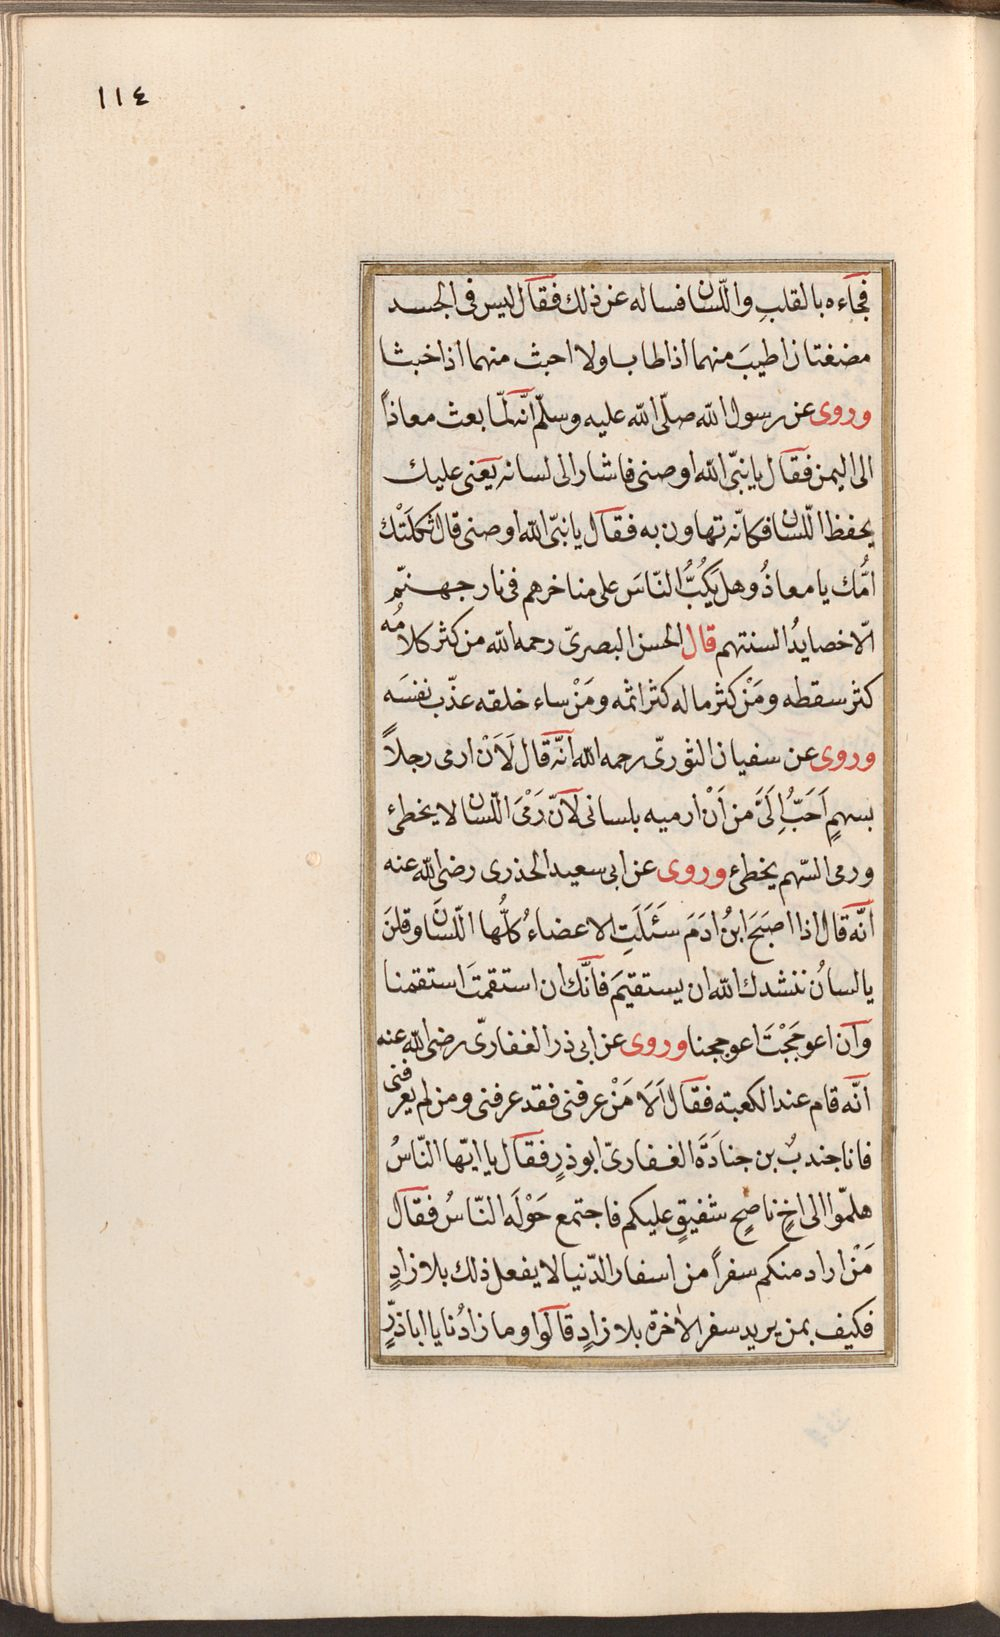 ١١٤
فجاءه بالقلبِ واللّسان فساله عن ذلك فقال ليس فى الجسد
مضغتان اطيبَ منهما اذا طاب ولا احبث منهما اذا خبثا
وروى عن رسول الله صلّى الله عليه وسلّم انّه لمّا بعث معاذاً
الى اليمن فقال يا نبّى الله اوصنى فاشار الى لسانه يعنى عليك
بحفظ اللّسان فكانّه تهاون به فقال يا نبّى الله اوصنى قال ثكلَتْك
امُّك يا معاذُ وهل يَكُبُّ النّاسَ على مناخرهم فى نار جهنّم
الّا خصايدُ السنتهم قال الحسن البصرىّ رحمه الله من كثر كلامُه
كثر سقطه ومَنْ كثر ماله كثر اثمه ومَنْ ساء خلقه عذّب نفسَه
وروى عن سفيان الثورىّ رحمه الله انّه قال لَاَنْ ارمى رجلاً
بسهمٍ اَحَبُّ اِلَىَّ من اَنْ ارميه بلسانى لانّ رَمْىَ اللّسان لا يخطئ
ورمى السّهم يخطئ وروى عن ابى سعيد الخذرى رضى الله عنه
انّه قال اذا اصبَحَ ابنُ ادَمَ سَئَلَتِ الاعضاءُ كلُّها اللّسانَ وقلنَ
يا لسانُ ننشدك الله ان يستقيَم فانّك ان استقمتَ استقمنا
وان اعوججْتَ اعوججنا وروى عن ابى ذر الغفارىّ رضى الله عنه
انّه قام عند الكعبته فقال اَلَا مَنْ عرفنى فقد عرفنى ومن لم يعرفنى
فانا جندبُ بن جنادَةَ الغفارىّ ابو ذرٍ فقال يا ايّها النّاسُ
هلمّوا الى اخٍ ناصحٍ شفيقٍ عليكم فاجتمع حَوْلَه النّاسُ فقال
مَنْ اراد منكم سفراً من اسفار الدّنيا لا يفعل ذلك بلا زادٍ
فكيف بمن يريد سفر الاخرة بلا زادٍ قالوا وما زادُنا يا اباذرٍّ